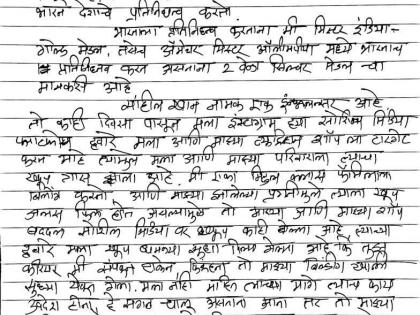 भारत देशाचे प्रतिनिधित्व करतो
भारताला प्रतिनिधित्व करताना मी मिस्टर इंडिया-
गोल्ड मेडल, तसेच अॅमेचर मिस्टर ऑलिम्पिया मध्ये भारताच
प्रतिनिधित्व करत असताना 2 वेळा सिल्वर मेडल चा
मानकरी आहे
साहिल खान नामक एक इन्फ्लुएन्सर आहे
तो काही दिवसा पासून मला इंस्टाग्राम ह्या सोशिअल मिडिया
द्वारे मला आणि माझ्या शॉप ला टारगेट
करत आहे त्यामुळे मला आणि माझ्या परिवाराला त्याचा
खूप त्रास झाला आहे. मी एका मिडल क्लास फॅमिलीला
बिलाँग करतो. आणि माझ्या झालेल्या प्रगतीमुळे त्याला खूप
जलस फिल होत असल्यामुळे तो माझ्या आणि माझ्या शॉप
बद्दल सोशील मिडिया वर खूप काही बोलला आहे त्याच्या
द्वारे मला खूप धमक्या सुद्धा दिल्या गेल्या आहे कि तुझ
करियर मी संपवून टाकेन तो माझ्या बिल्डींग खाली
सुद्धा येऊन गेला. मला नाही माहित त्याच्या मागे त्याचा काय
उद्देश होता. हे सगळ चालू असताना आता तर तो माझ्या